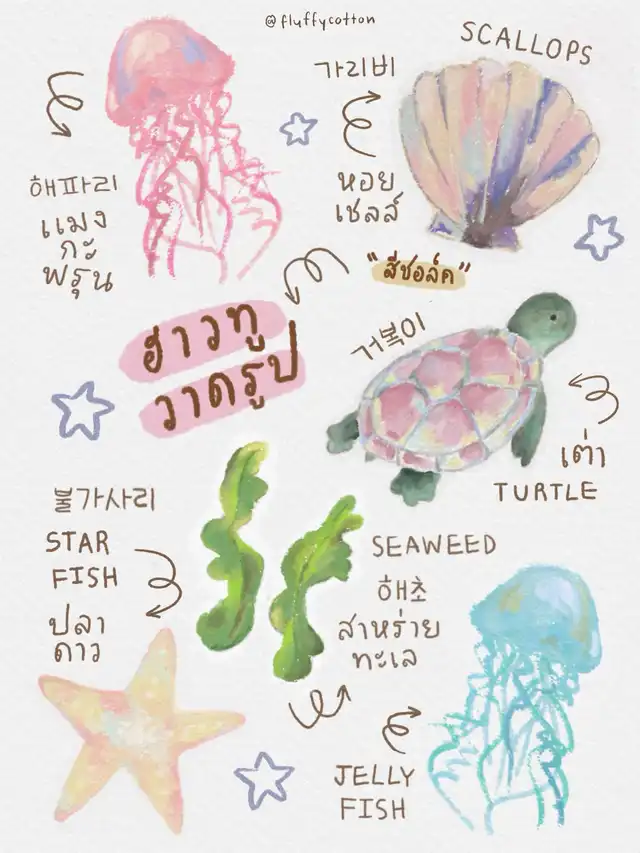 @fluffycotton
SCALLOPS
가리비
หอย
เชลล์
해파리
แมง
กะ
พรุน
"สีชอล์ค"
ฮาวทู
วาดรูป
거북이
เต่า
TURTLE
불가사리
STAR
FISH
ปลา
ดาว
SEAWEED
해초
สาหร่าย
ทะเล
JELLY
FISH